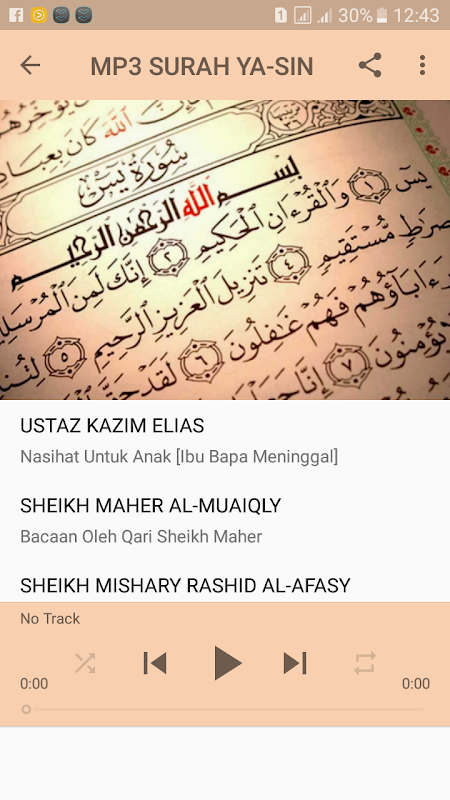 30% 12:43
MP3 SURAH YA-SIN
ٱللَّهَ كَانَ بِعِبَادِ
سُورَةُ يسٓ
بِسْمِ اللَّهِ الرَّحْمَٰنِ الرَّحِيمِ
يسٓ ١ وَٱلْقُرْءَانِ ٱلْحَكِيمِ ٢ إِنَّكَ لَمِنَ ٱلْمُرْسَلِ
صِرَٰطٍ مُّسْتَقِيمٍ ٤ تَنزِيلَ ٱلْعَزِيزِ ٱلرَّحِيمِ ٥
ءَابَآؤُهُمْ فَهُمْ غَٰفِلُونَ ٦ لَقَدْ حَقَّ
يُؤْمِنُونَ ٧ إِنَّا جَعَلْنَا
USTAZ KAZIM ELIAS
Nasihat Untuk Anak [Ibu Bapa Meninggal]
SHEIKH MAHER AL-MUAIQLY
Bacaan Oleh Qari Sheikh Maher
SHEIKH MISHARY RASHID AL-AFASY
No Track
0:00
0:00